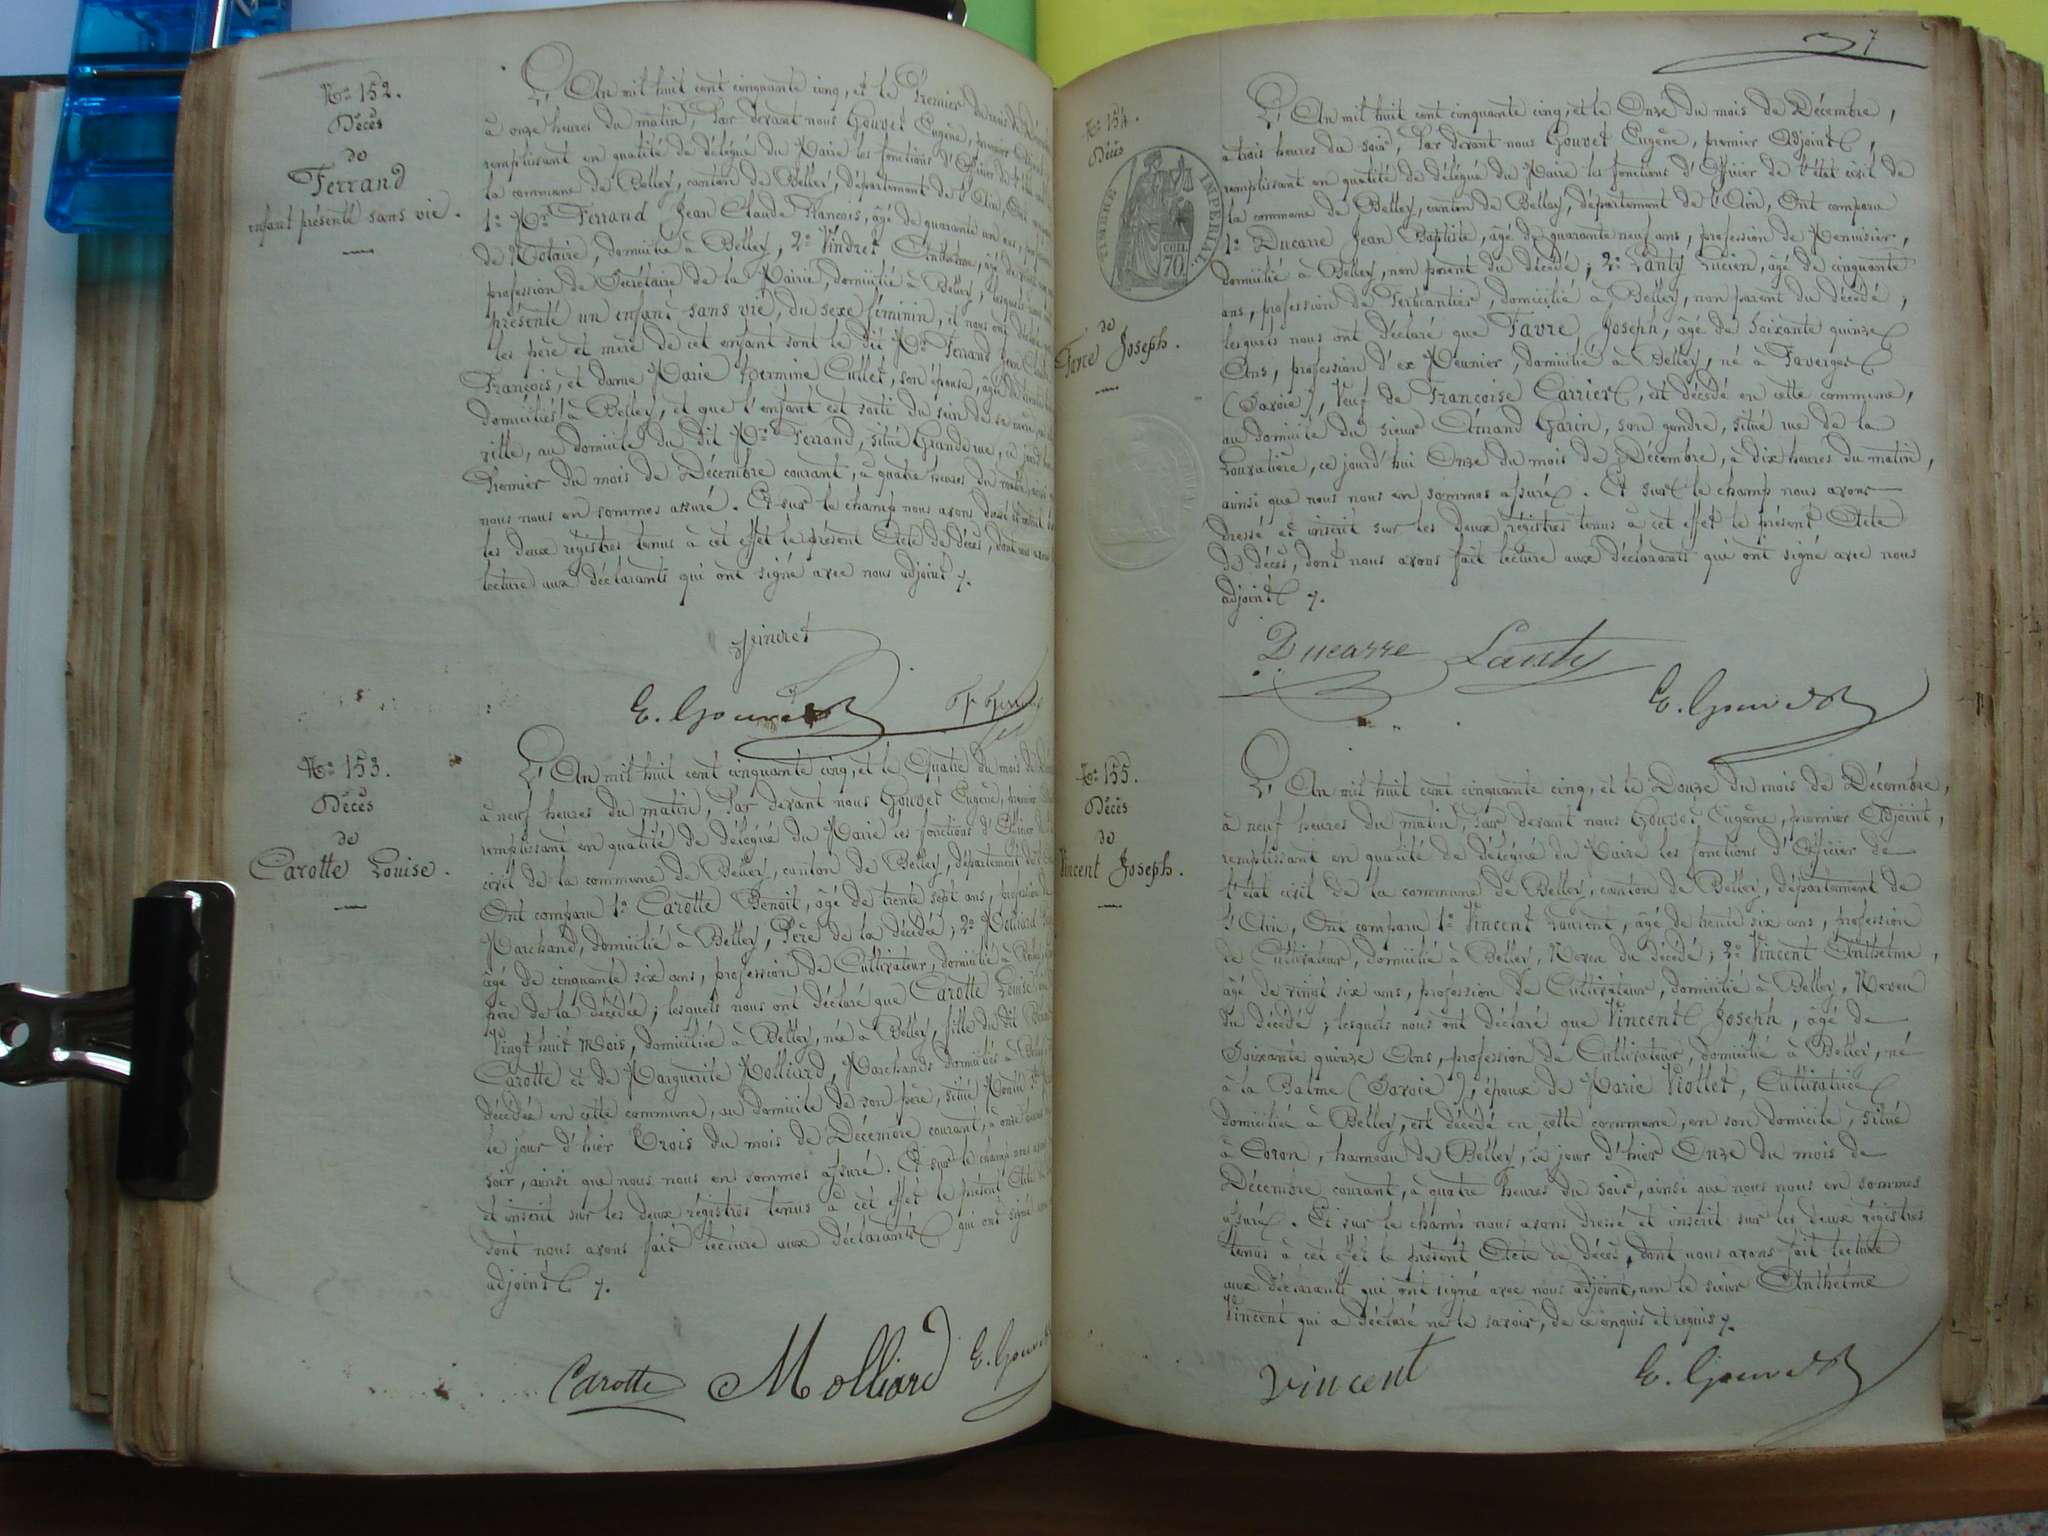 No 152.
Décès
de
Ferrand
enfant présenté sans vie.
L'An mil huit cent cinquante cinq, et le Premier du mois de
à onze heures du matin, Par devant nous Gouvet Eugène, premier
remplissant en qualité de délégué du Maire les fonctions d'Officier de l'état
la commune de Belley, canton de Belley, département de l'Ain, Ont
1o Mr Ferrand Jean Claude François, âgé de quarante un ans,
de Notaire, domicilié à Belley, 2o Vindret Anthelme, âgé de
profession de Secrétaire de la Mairie, domicilié à Belley; lesquels
présenté un enfant sans vie, du sexe féminin, et nous ont
les père et mère de cet enfant sont le dit Mr Ferrand Jean
François, et dame Marie Hermine Cullet, son épouse, âgée de
domiciliés à Belley, et que l'enfant est sorti du sein de sa mère
ville, au domicile du dit Mr Ferrand, situé Grande rue,
Premier du mois de Décembre courant, à quatre heures du matin, ainsi
nous nous en sommes assuré. Et sur le champ nous avons
les deux régistres tenus à cet effet le présent Acte de décès, dont nous
lecture aux déclarants qui ont signé avec nous adjoint
Vindret
E. Gouvet
No 153.
Décès
de
Carotte Louise.
L'An mil huit cent cinquante cinq, et le Quatre du mois de
à neuf heures du matin, Par devant nous Gouvet Eugène, premier
remplissant en qualité de délégué du Maire les fonctions d'Officier de
civil de la commune de Belley, canton de Belley, département de
Ont comparu 1o Carotte Benoit, âgé de trente sept ans, profession de
Marchand, domicilié à Belley, Père de la décédée; 2o Molliard
âgé de cinquante six ans, profession de Cultivateur, domicilié à
père de la décédée; lesquels nous ont déclaré que Carotte Louise
Vingt huit Mois, domiciliée à Belley, née à Belley, fille du dit
Carotte et de Marguerite Molliard, Marchands domiciliés à
décédée en cette commune, au domicile de son père, situé
le jour d'hier Trois du mois de Décembre courant, à onze heures
soir, ainsi que nous nous en sommes assuré. Et sur le champ nous
et inscrit sur les deux régistres tenus à cet effet le présent Acte de
dont nous avons fait lecture aux déclarants qui ont signé
adjoint
Carotte Molliard E. Gouvet
7
No 154.
Décès
TIMBRE IMPERIAL
CEN.
70
de
Favre Joseph.
L'An mil huit cent cinquante cinq, et le Onze du mois de Décembre,
à trois heures du soir, Par devant nous Gouvet Eugène, premier Adjoint,
remplissant en qualité de délégué du Maire les fonctions d'Officier de l'état civil de
la commune de Belley, canton de Belley, département de l'Ain, Ont comparu
1o Ducarre Jean Baptiste, âgé de quarante neuf ans, profession de Menuisier,
domicilié à Belley, non parent du décédé; 2o Lanty Lucien, âgé de cinquante
ans, profession de Ferblantier, domicilié à Belley, non parent du décédé;
lesquels nous ont déclaré que Favre, Joseph, âgé de Soixante quinze
Ans, profession d'ex Meunier, domicilié à Belley, né à Faverges
(Savoie), Veuf de Françoise Carrier, est décédé en cette commune,
au domicile du sieur Amand Garin, son gendre, situé rue de la
Louvatière, ce jourd'hui Onze du mois de Décembre, à dix heures du matin,
ainsi que nous nous en sommes assuré. Et sur le champ nous avons
dressé et inscrit sur les deux régistres tenus à cet effet le présent Acte
de décès, dont nous avons fait lecture aux déclarants qui ont signé avec nous
adjoint
Ducarre Lanty
E. Gouvet
No 155.
Décès
de
Vincent Joseph.
L'An mil huit cent cinquante cinq, et le Douze du mois de Décembre,
à neuf heures du matin, Par devant nous Gouvet Eugène, premier Adjoint,
remplissant en qualité de délégué du Maire les fonctions d'Officier de
l'état civil de la commune de Belley, canton de Belley, département de
l'Ain, Ont comparu 1o Vincent Laurent, âgé de trente six ans, profession
de Cultivateur, domicilié à Belley, Neveu du décédé; 2o Vincent Anthelme,
âgé de vingt six ans, profession de Cultivateur, domicilié à Belley, Neveu
du décédé; lesquels nous ont déclaré que Vincent Joseph, âgé de
Soixante quinze Ans, profession de Cultivateur, domicilié à Belley, né
à la Balme (Savoie), époux de Marie Viollet, Cultivatrice
domiciliée à Belley, est décédé en cette commune, en son domicile, situé
à Coron, hameau de Belley, le jour d'hier Onze du mois de
Décembre courant, à quatre heures du soir, ainsi que nous nous en sommes
assuré. Et sur le champ nous avons dressé et inscrit sur les deux régistres
tenus à cet effet le présent Acte de décès, dont nous avons fait lecture
aux déclarants qui ont signé avec nous adjoint, non le sieur Anthelme
Vincent qui a déclaré ne le savoir, de ce enquis et requis
Vincent E. Gouvet